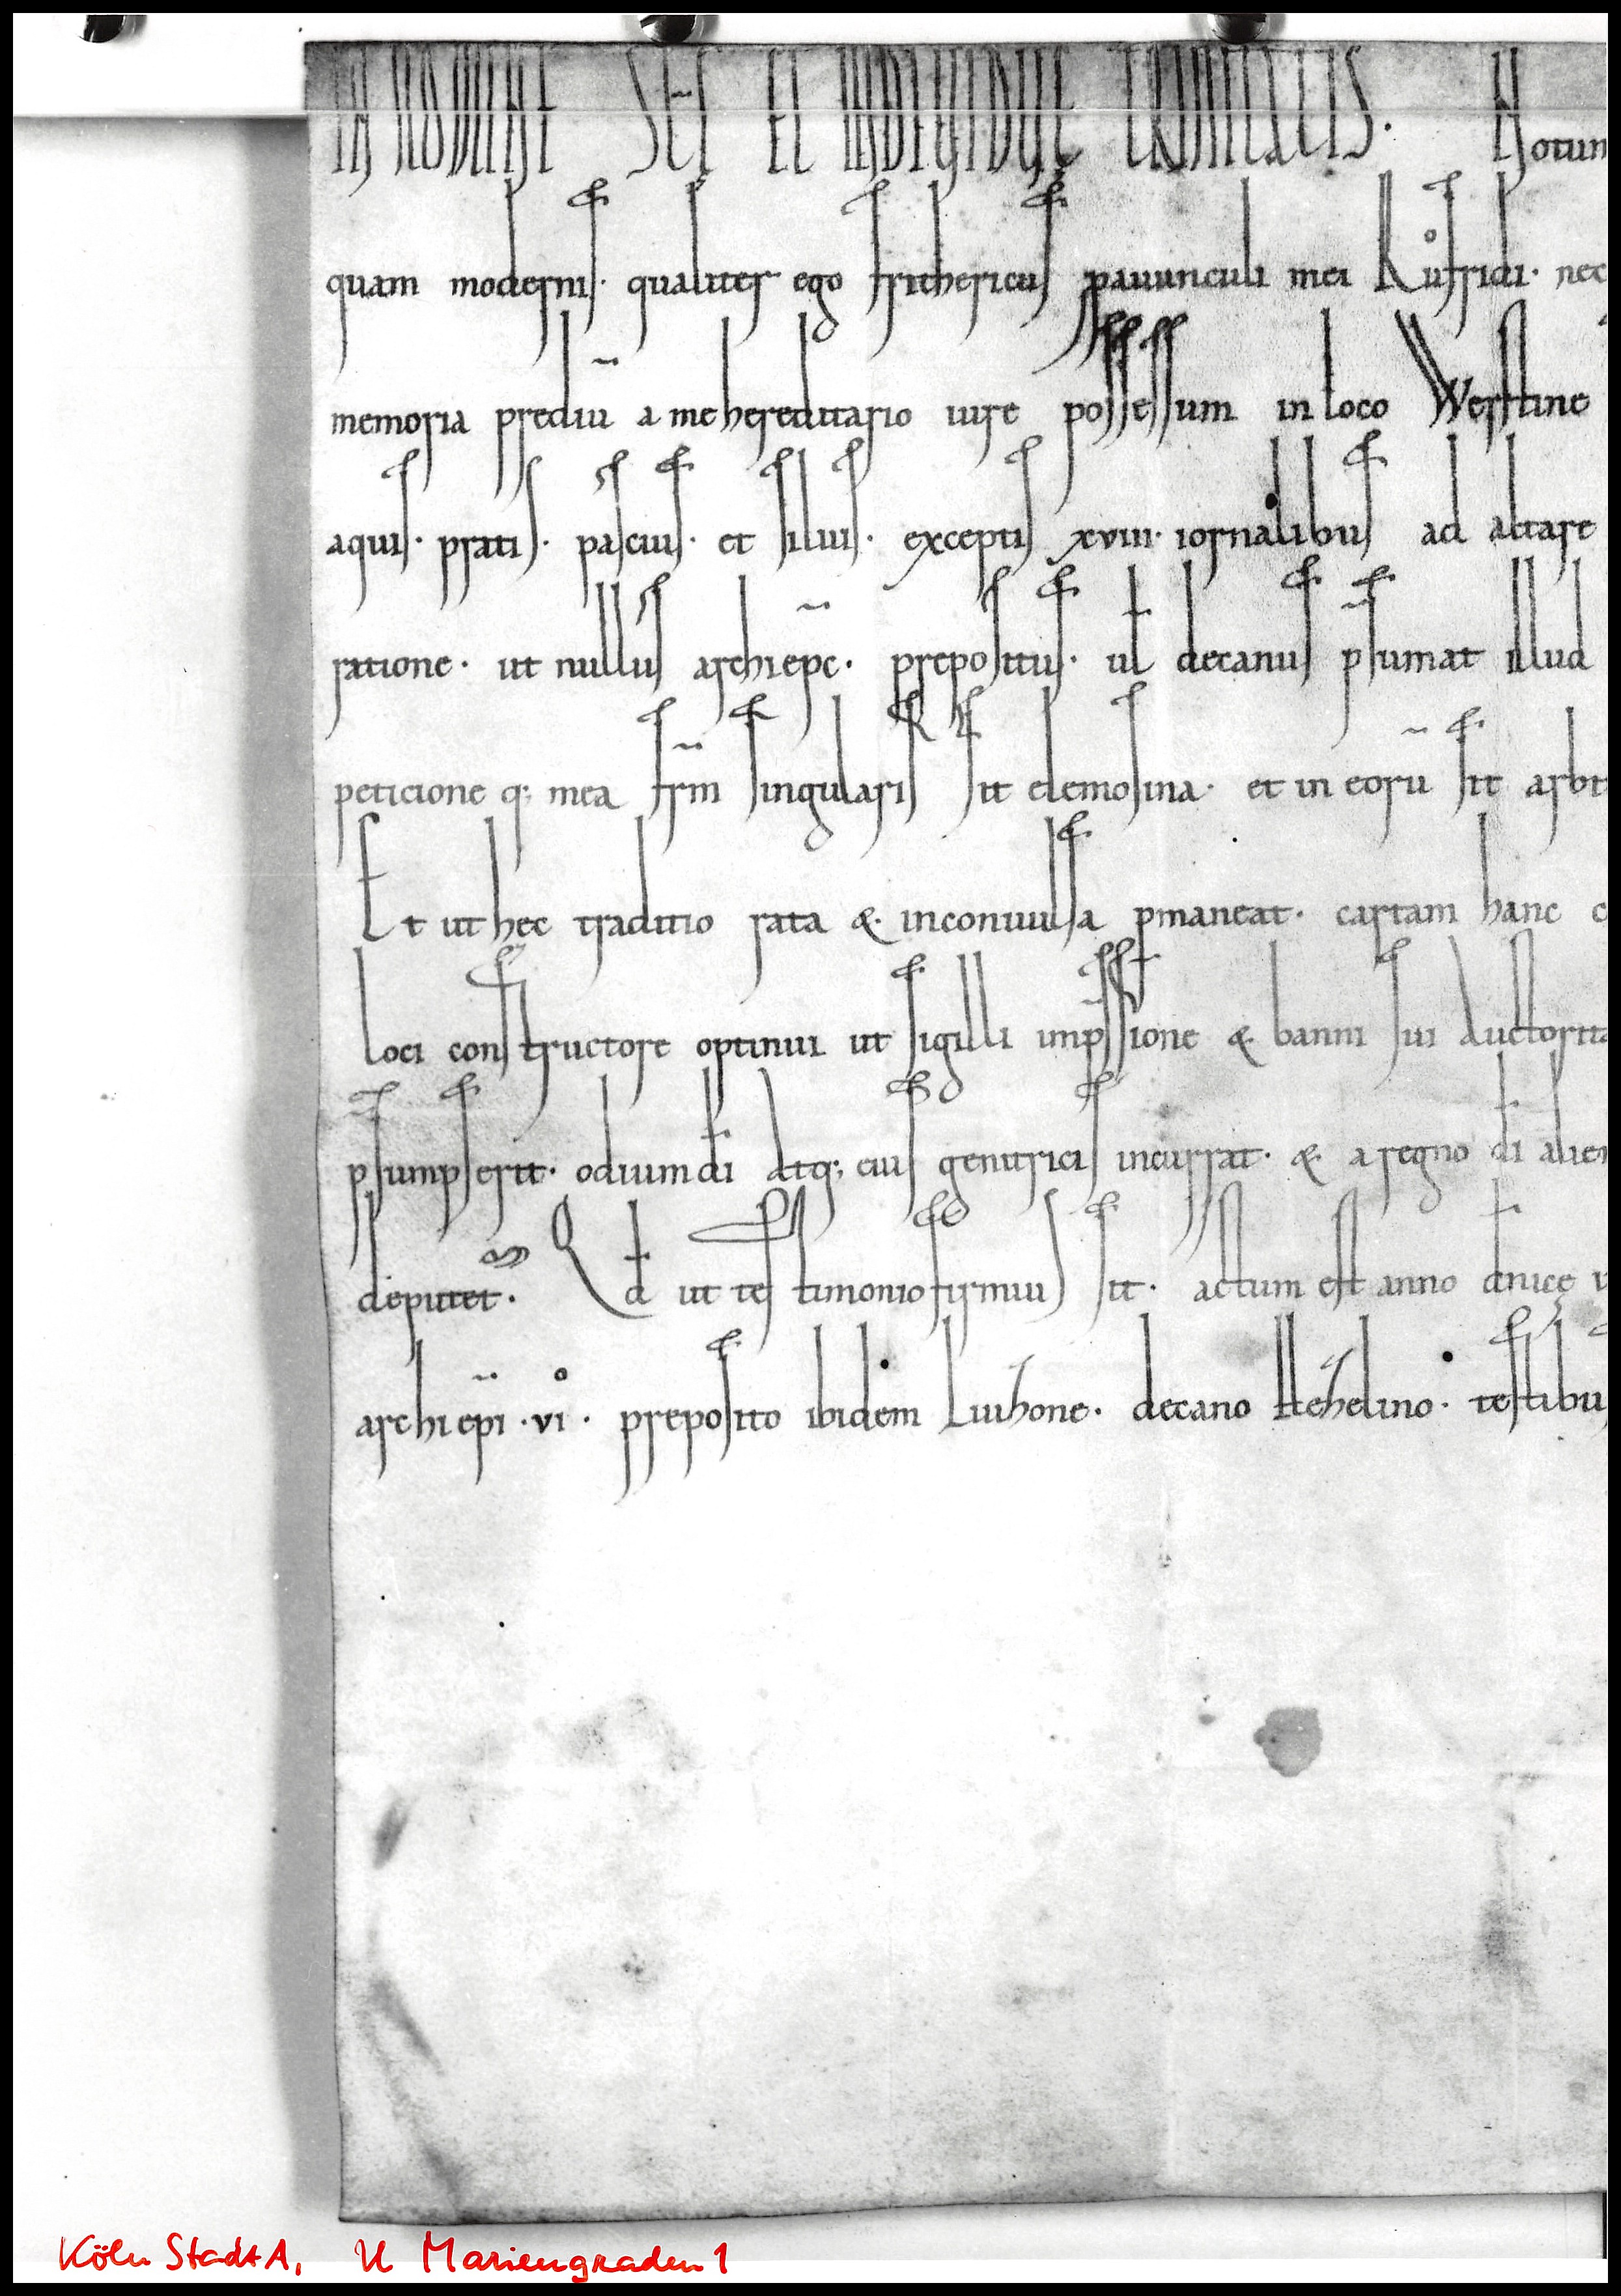 IN NOMINE SCE ET INDIVIDUE TRINITATIS. Notum
quam modernis· qualiter ego frithericus p auunculi mei Růfridi· nec
memoria prediū a me hereditario iure possessum in loco Werstine
aquis· pratis· pascuis· et siluis· exceptis xviii· iornalibus ad altare
ratione· ut nullus archiepc· prepositus· ul decanus p̄sumat illud
peticione q; mea frm̄ singularis sit elemosina· et in eorū sit arbit
Et ut hec traditio rata &· inconuulsa pmaneat· cartam hanc c
loci constructore optinui ut sigilli imp̄ssione & banni sui auctorita
p̄sumpserit· odium di atq; eius genitricis incurrat· & a regno di alien
deputet· Qd ut testimonio firmius sit· actum est anno dnicę
archiepi ·vi· preposito ibidem Liuhone· decano Hehelino· testibus
Köln StadtA, U Mariengraden 1